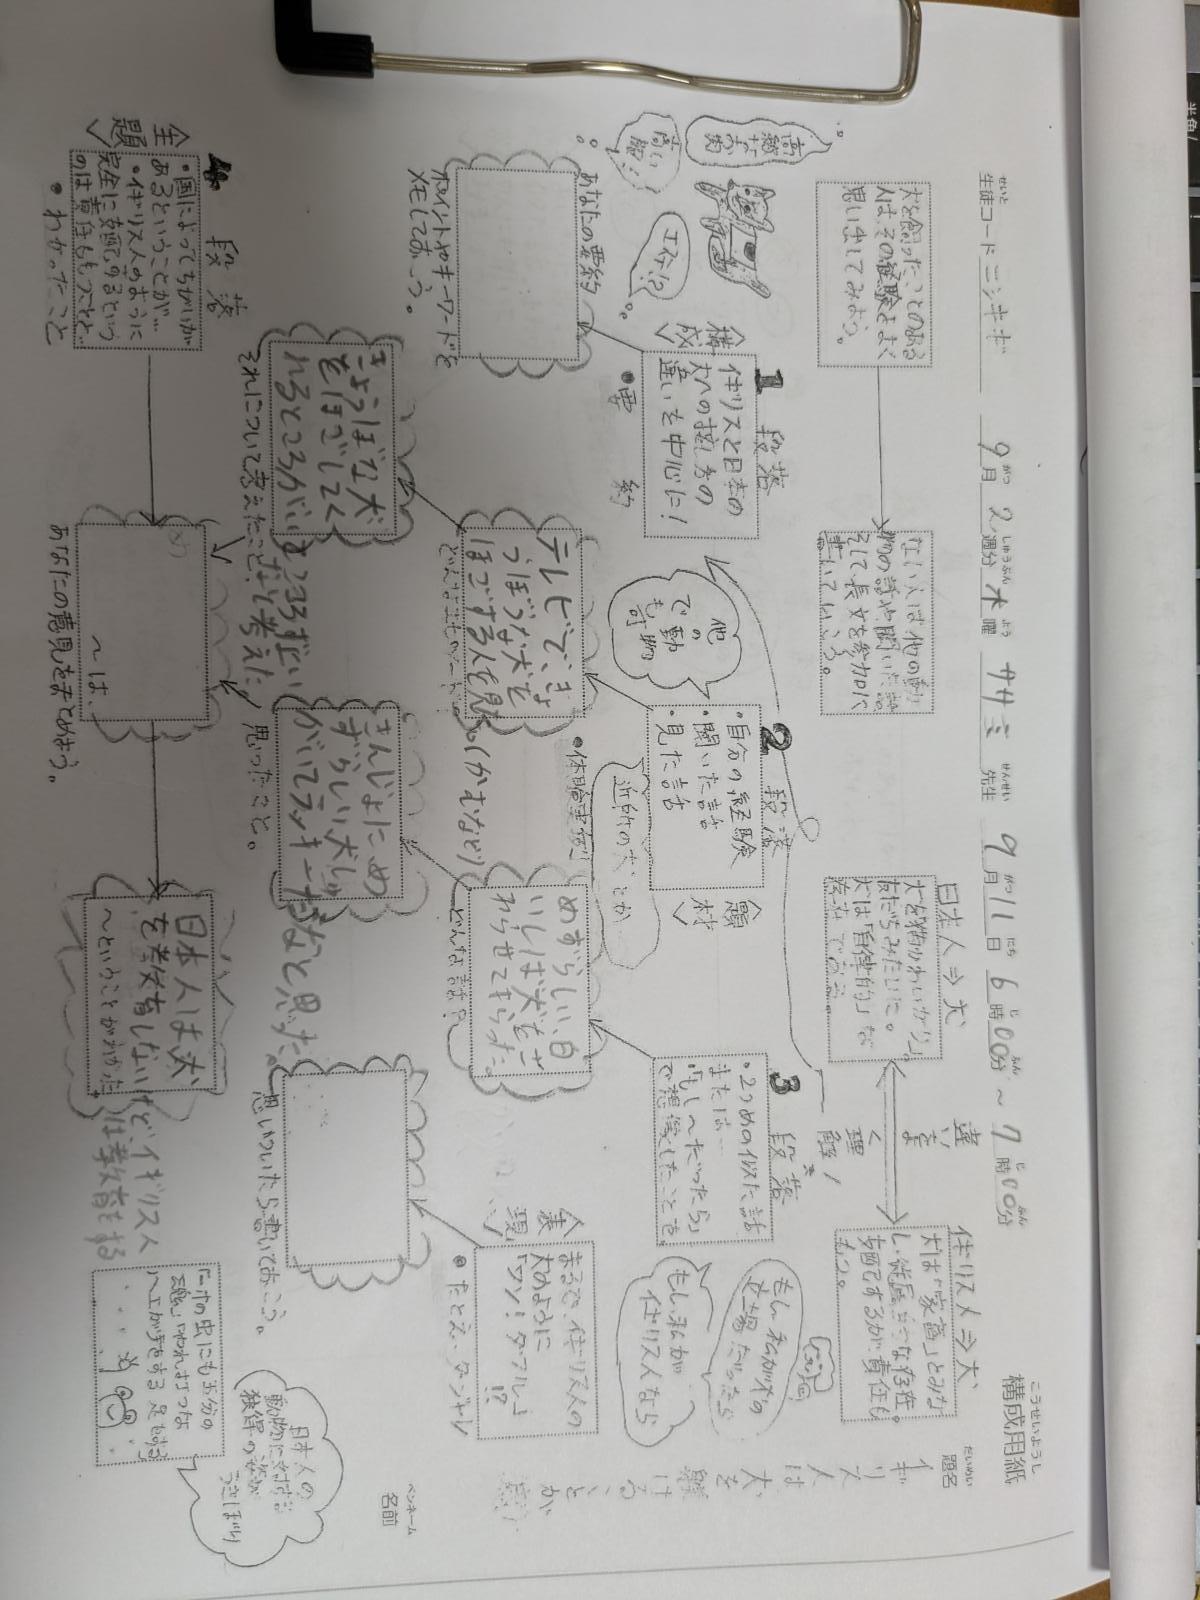 構成用紙
こうせいようし
題名
だいめい
イギリス人は
犬を
躾ける
ペンネーム
名前
せいと
生徒コード ニシキボ 9月2週分 水曜 ササミ 先生 9月11日 6時00分 ~ 7時00分
犬を飼ったことのある
人は、その経験をよく
思い出してみよう。
ない人は他の動
物の話や聞いた話
そして長文を参加に
書いていこう。
日本人⇒犬
友だちみたいに。
犬は「自律的」な
存在である。
違いをよく理解!
イギリス人⇒犬
犬は「家畜」とみな
し従属させる存在。
支配するが責任も
もつ。
高級
賢い
エイ!?
〈構成〉
1段落
イギリスと日本の
犬への接し方の
違いを中心に!
●要約
あなたの要約
ポイントやキーワードを
メモしておこう。
他の動物でも可
2段落
・自分の経験
・聞いた話
・見た話
〈題材〉
●体験実例
近所の犬とか
テレビで、きょ
うぼうな犬を
ほごする人を見た(かむなど)
めずらしい、白
いしば犬をさ
わらせてもらった。
どんな話?
3段落
・2つめの似た話
または…
「もし~だったら」
で想像したことを
もし私が犬の
立場だったら
もし私が
イギリス人なら
〈表現〉
まるで、イギリス人の
犬のように
「ワン!ダフル」
!?
●たとえ・ダジャレ
きょうぼうな犬
をほごしてく
れるところがいまっころすごい
それについて考えたことなど考えた
きんじょにめ
ずらしい犬しゅ
がいてラッキーだなと思った。
思ったこと。
思いついたら書いておこう。
4段落
〈主題〉
・国によってちがいが
あるということが…
・イギリス人のように
完全に支配するという
のは責任ももつことと、
●わかったこと
~は、
あなたの意見をまとめよう。
日本人は犬
を教育しないけど、イギリス人
は教育をする
~ということがわかった
「一寸の虫にも五分の
魂」「やれ打つな
ハエが手をする足をする」
日本人の
動物に対する
独特の姿が
うきぼり